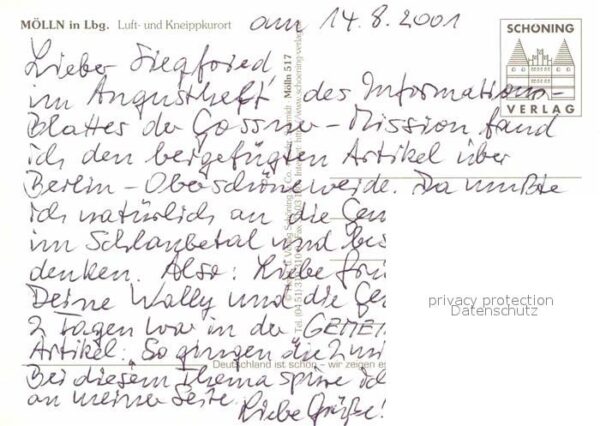 MÖLLN in Lbg. Luft- und Kneippkurort
am 14.8.2001
SCHÖNING
VERLAG
Lieber Siegfried,
im Augustheft des Informations-
Blattes der Gossner-Mission fand
ich den beigefügten Artikel über
Berlin-Oberschöneweide. Da mußte
ich natürlich an die Gem
im Schlaubetal und bei
denken. Also: Liebe Grü
Deine Wally und die Ge
2 Tagen war in der GEMEI
Artikel: So gingen die 2
Bei diesem Thema spüre ich
an meiner Seite. Liebe Grüße!
Mölln 517
Deutschland ist schön – wir zeigen es
privacy protection
Datenschutz